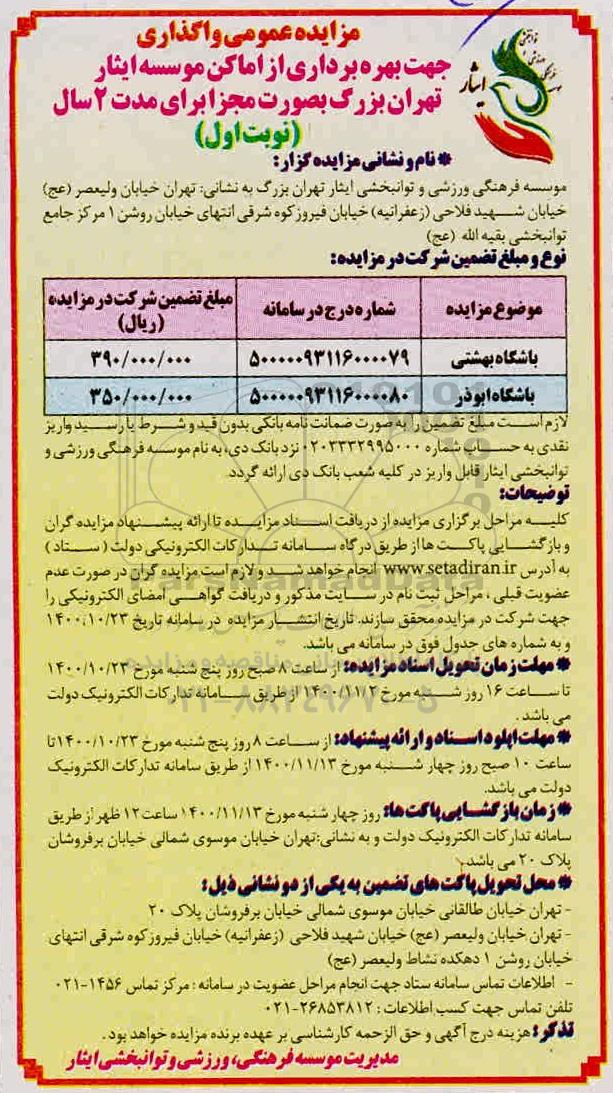 مزایده عمومی واگذاری
جهت بهره برداری از اماکن موسسه ایثار
تهران بزرگ بصورت مجزا برای مدت ۲ سال
(نوبت اول)
ایثار
* نام و نشانی مزایده گزار:
موسسه فرهنگی ورزشی و توانبخشی ایثار تهران بزرگ به نشانی: تهران خیابان ولیعصر (عج)
خیابان شهید فلاحی (زعفرانیه) خیابان فیروزکوه شرقی انتهای خیابان روشن ۱ مرکز جامع
توانبخشی بقیه الله (عج)
نوع و مبلغ تضمین شرکت در مزایده:
موضوع مزایده شماره درج در سامانه مبلغ تضمین شرکت در مزایده (ریال)
باشگاه بهشتی ۵۰۰۰۰۰۹۳۱۱۶۰۰۰۰۷۹ ۳۹۰/۰۰۰/۰۰۰
باشگاه ابوذر ۵۰۰۰۰۰۹۳۱۱۶۰۰۰۰۸۰ ۳۵۰/۰۰۰/۰۰۰
لازم است مبلغ تضمین را به صورت ضمانت نامه بانکی بدون قید و شرط یا رسید واریز
نقدی به حساب شماره ۰۲۰۳۳۳۲۹۹۵۰۰۰ نزد بانک دی، به نام موسسه فرهنگی ورزشی و
توانبخشی ایثار قابل واریز در کلیه شعب بانک دی ارائه گردد.
توضیحات:
کلیه مراحل برگزاری مزایده از دریافت اسناد مزایده تا ارائه پیشنهاد مزایده گران
و بازگشایی پاکت ها از طریق درگاه سامانه تدارکات الکترونیکی دولت (ستاد)
به آدرس www.setadiran.ir انجام خواهد شد و لازم است مزایده گران در صورت عدم
عضویت قبلی، مراحل ثبت نام در سایت مذکور و دریافت گواهی امضای الکترونیکی را
جهت شرکت در مزایده محقق سازند. تاریخ انتشار مزایده در سامانه تاریخ ۱۴۰۰/۱۰/۲۳
و به شماره های جدول فوق در سامانه می باشد.
* مهلت زمان تحویل اسناد مزایده: از ساعت ۸ صبح روز پنج شنبه مورخ ۱۴۰۰/۱۰/۲۳
تا ساعت ۱۶ روز شنبه مورخ ۱۴۰۰/۱۱/۲ از طریق سامانه تدارکات الکترونیک دولت
می باشد.
* مهلت اپلود اسناد و ارائه پیشنهاد: از ساعت ۸ روز پنج شنبه مورخ ۱۴۰۰/۱۰/۲۳ تا
ساعت ۱۰ صبح روز چهار شنبه مورخ ۱۴۰۰/۱۱/۱۳ از طریق سامانه تدارکات الکترونیک
دولت می باشد.
* زمان بازگشایی پاکت ها: روز چهار شنبه مورخ ۱۴۰۰/۱۱/۱۳ ساعت ۱۲ ظهر از طریق
سامانه تدارکات الکترونیک دولت و به نشانی:تهران خیابان موسوی شمالی خیابان برفروشان
پلاک ۲۰ می باشد.
* محل تحویل پاکت های تضمین به یکی از دو نشانی ذیل:
- تهران خیابان طالقانی خیابان موسوی شمالی خیابان برفروشان پلاک ۲۰
- تهران خیابان ولیعصر (عج) خیابان شهید فلاحی (زعفرانیه) خیابان فیروزکوه شرقی انتهای
خیابان روشن ۱ دهکده نشاط ولیعصر (عج)
- اطلاعات تماس سامانه ستاد جهت انجام مراحل عضویت در سامانه: مرکز تماس ۱۴۵۶-۰۲۱
تلفن تماس جهت کسب اطلاعات: ۲۶۸۵۳۸۱۲-۰۲۱
تذکر: هزینه درج آگهی و حق الزحمه کارشناسی بر عهده برنده مزایده خواهد بود.
مدیریت موسسه فرهنگی، ورزشی و توانبخشی ایثار